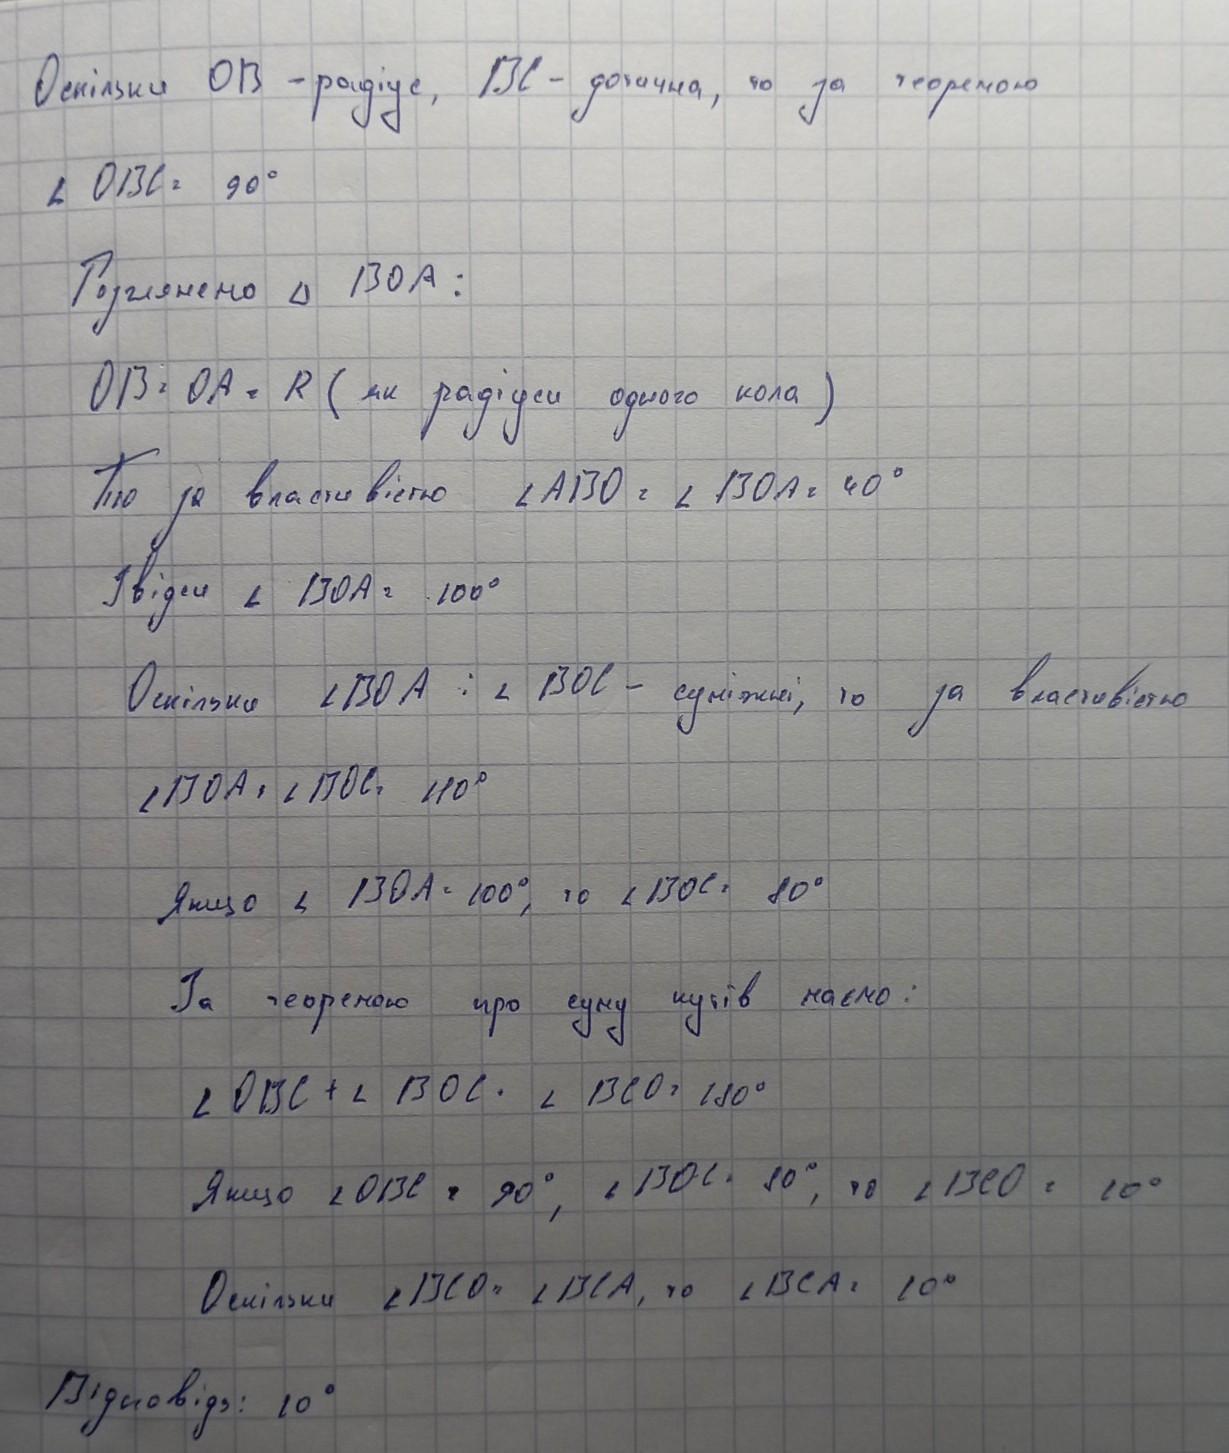 Оскільки OB - радіус, BC - дотична, то за теоремою
∠ OBC = 90°
Розглянемо △ BOA :
OB = OA = R ( як радіуси одного кола )
То за властивістю ∠ABO = ∠ BOA = 40°
Звідси ∠ BOA = 100°
Оскільки ∠BOA і ∠ BOC - суміжні, то за властивістю
∠BOA + ∠BOC = 180°
Якщо ∠ BOA = 100°, то ∠BOC = 80°
За теоремою про суму кутів маємо :
∠ OBC + ∠ BOC + ∠ BCO = 180°
Якщо ∠OBC = 90°, ∠BOC = 80°, то ∠BCO = 10°
Оскільки ∠BCO = ∠BCA, то ∠BCA = 10°
Відповідь: 10°